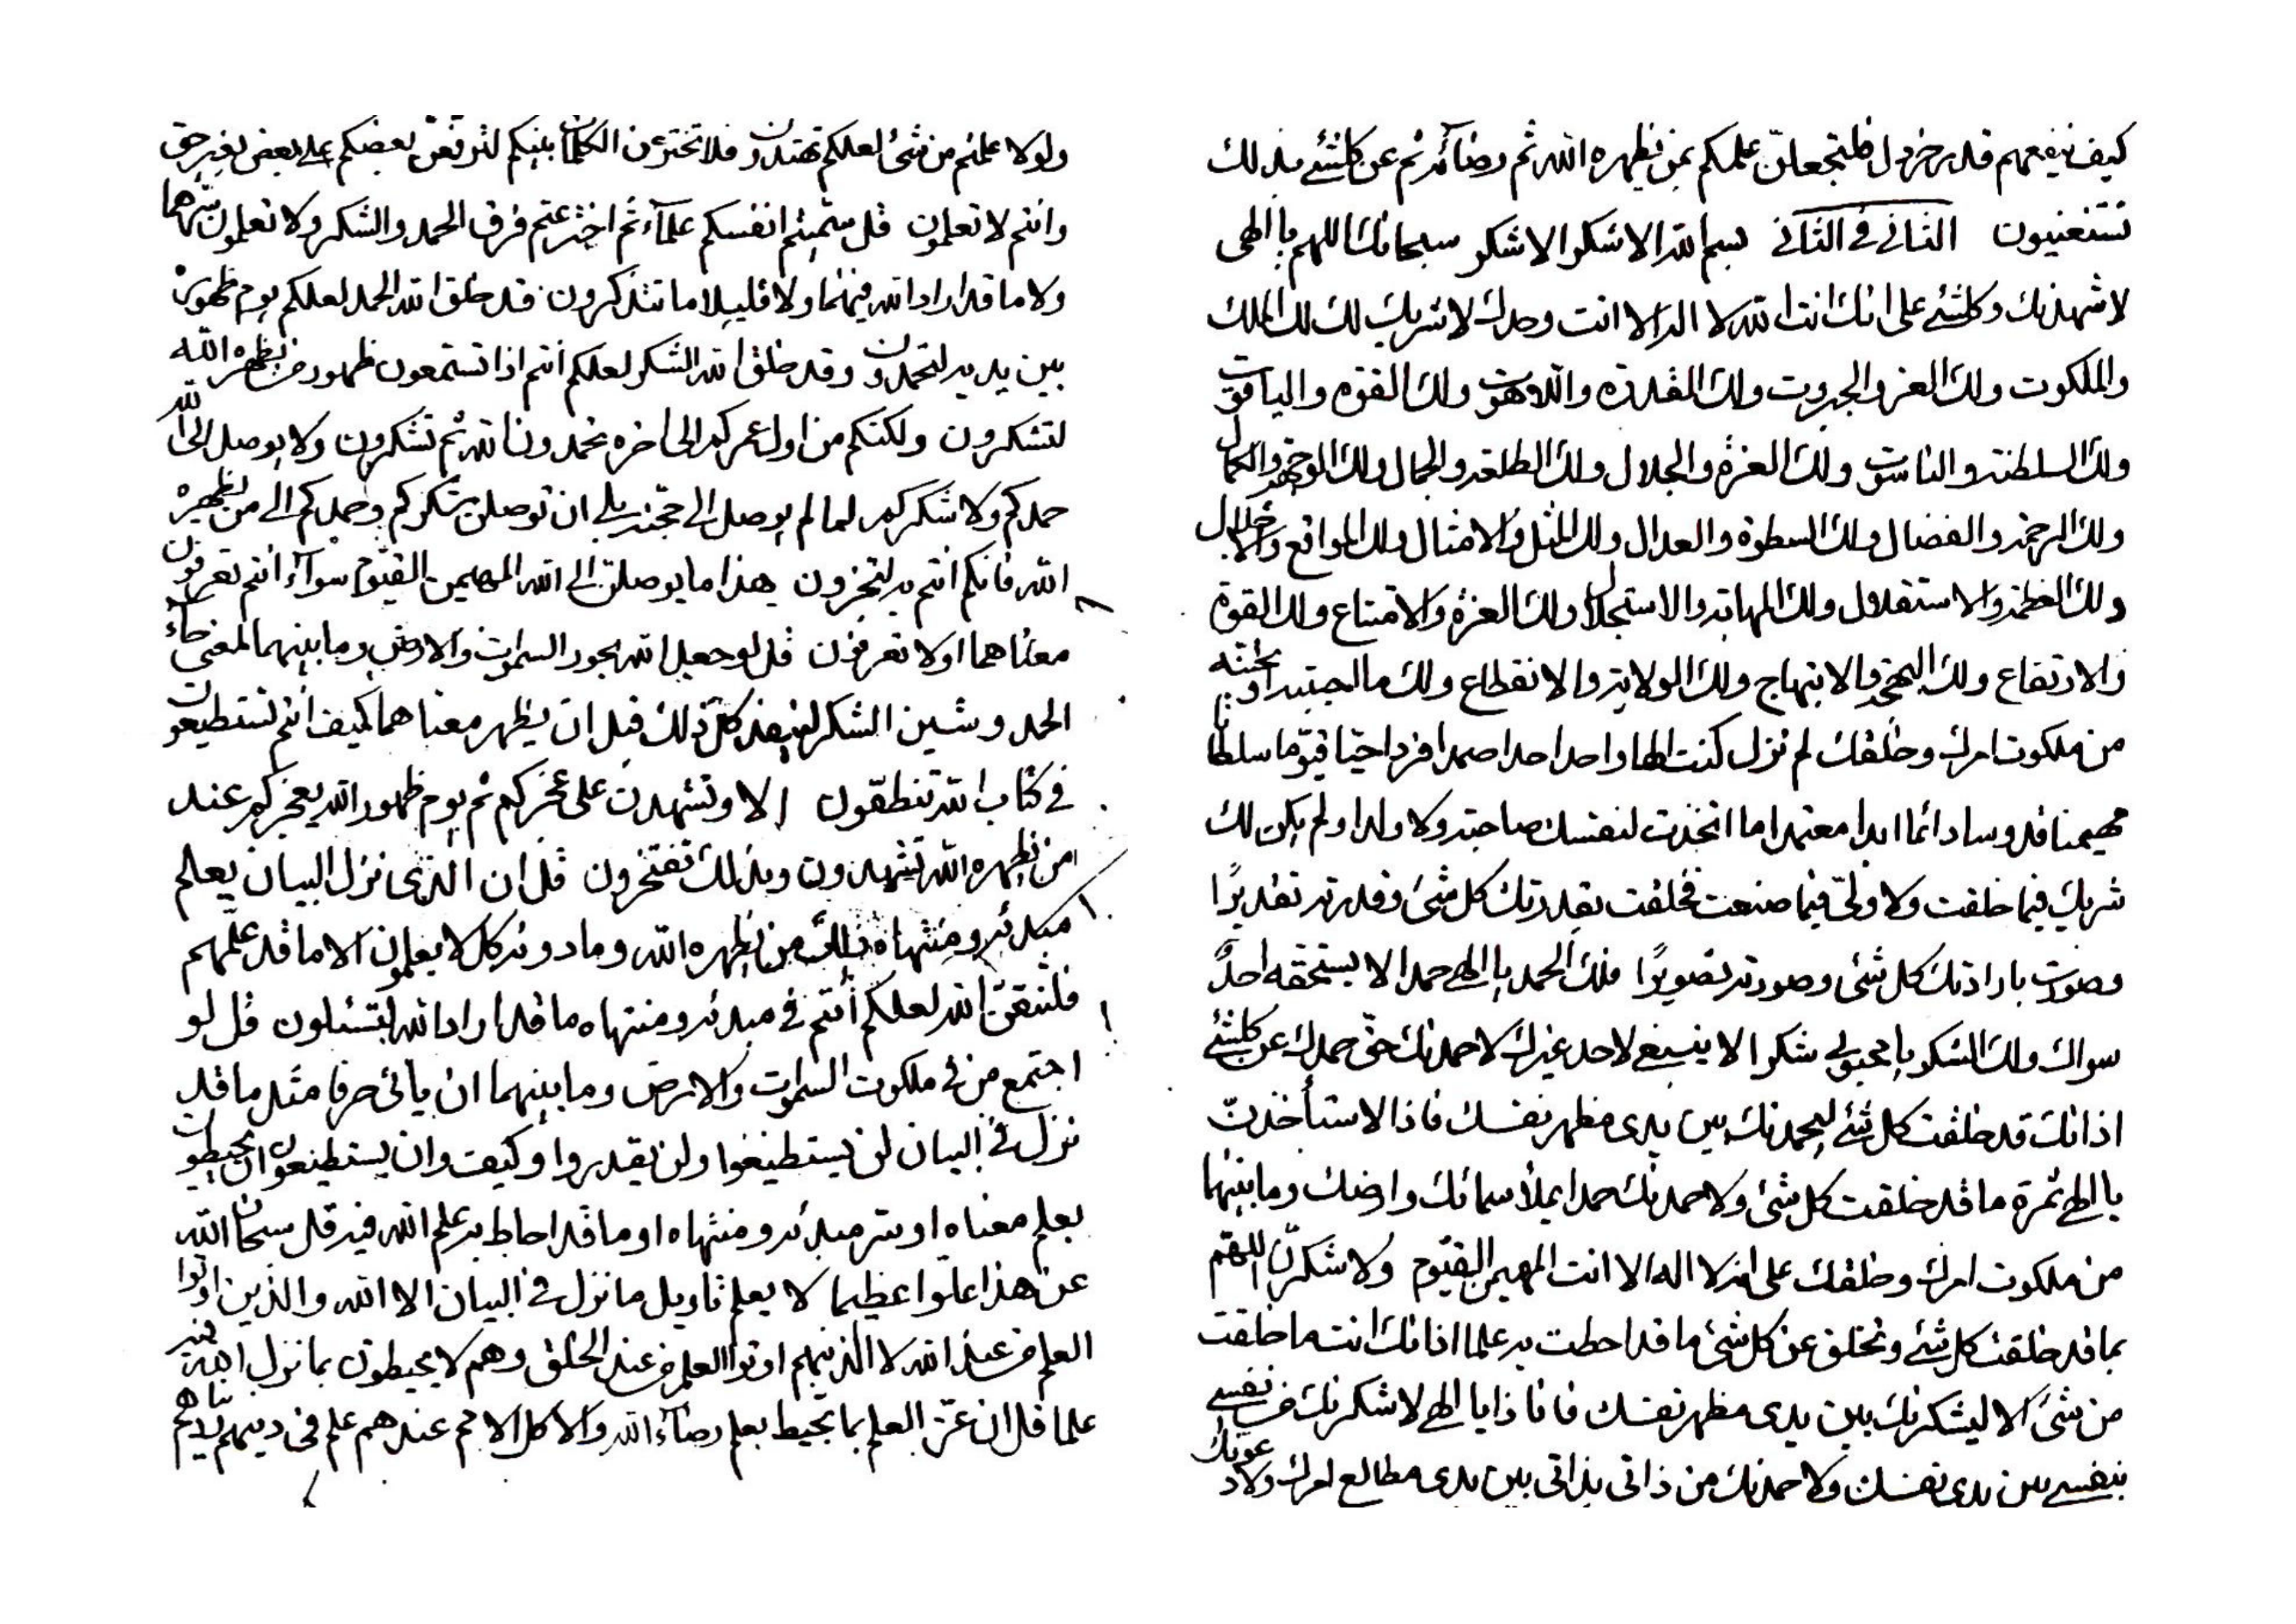 كيف ينفعهم قدر خردل فلتجعلن علمكم بمن يظهره الله ثم رضائه ثم عن كلشئ بذلك
تستغنيون الثاني في الثاني بسم الله الاشكر الاشكر سبحانك اللهم يا الهي
لاشهدنك وكلشئ على انك انت الله لا اله الا انت وحدك لا شريك لك لك الملك
والملكوت ولك العز والجبروت ولك القدرة واللاهوت ولك القوة والياقوت
ولك السلطنة والناسوت ولك العزة والجلال ولك الطلعة والجمال ولك الوجهة والكمال
ولك الرحمة والفضال ولك السطوة والعدال ولك المثل والامثال ولك المواقع والاجلال
ولك العظمة والاستقلال ولك المهابة والاستجلال ولك العزة والامتناع ولك القوة
والارتفاع ولك البهجة والابتهاج ولك الولاية والانقطاع ولك ما احببته او تحبنه
من ملكوت امرك وخلقك لم تزل كنت الها واحدا احدا صمدا فردا حيا قيوما سلطانا
مهيمنا قدوسا دائما ابدا معتمدا ما اتخذت لنفسك صاحبة ولا ولدا ولم يكن لك
شريك فيما خلقت ولا ولي فيما صنعت فخلقت بقدرتك كل شئ وقدرته تقديرا
وصورت بارادتك كل شئ وصورته تصويرا فلك الحمد يا الهي حمدا لا يستحقه احد
سواك ولك الشكر يا محبوبي شكرا لا ينبغي لاحد غيرك لاحمدنك حق حمدك عن كلشئ
اذ انك قد خلقت كل شئ ليحمدنك بين يدى مظهر نفسك فاذا لاستأخذن
يا الهي ثمرة ما قد خلقت كل شئ ولاحمدنك حمدا يملأ سمائك وارضك وما بينهما
من ملكوت امرك وخلقك على انه لا اله الا انت المهيمن القيوم ولاشكرنك اللهم
بما قد خلقت كل شئ وتخلق عن كل شئ ما قد احطت به علما اذ انك انت ما خلقت
من شئ الا ليشكرنك بين يدى مظهر نفسك فانا ذا يا الهي لاشكرنك من نفسي
بنفسي بين يدى نفسك ولاحمدنك من ذاتي بذاتي بين يدى مطالع امرك ولادعونك
ولولا علمتم من شئ لعلكم تهتدون فلا تخترعن الكلمات بينكم لترفعن بعضكم على بعض بغير حق
وانتم لا تعلمون قل سميتم انفسكم علماء ثم اخترعتم فرق الحمد والشكر ولا تعلمون سرهما
ولا ما قد اراد الله فيهما ولا قليلا ما تتذكرون قد خلق الله الحمد لعلكم يوم ظهوره
بين يديه لتحمدون وقد خلق الله الشكر لعلكم انتم اذا تستمعون ظهور من يظهره الله
لتشكرون ولكنكم من اول عمركم الى اخره تحمدون الله ثم تشكرون ولا يوصل الى الله
حمدكم ولا شكركم لما لم يوصل الى حجته بلى ان توصلن شكركم وحمدكم الى من يظهره
الله فانكم انتم به لتجزون هذا ما يوصلن الى الله المهيمن القيوم سواء انتم تعرفون
معناهما اولا تعرفون قل لو جعل الله بحور السموات والارض وما بينهما لمعنى حاء
الحمد وشين الشكر لينفد كل ذلك قبل ان يظهر معناهما كيف انتم تستطيعون
في كتاب الله تنطقون الا وتشهدن على عجزكم ثم يوم ظهور الله بعجزكم عند
من يظهره الله تشهدون وبذلك تفتخرون قل ان الذي نزل البيان يعلم
مبدئه ومنتهاه ذلك من يظهره الله وما دونه كل لا يعلمون الا ما قد علمهم
فلتتقن الله لعلكم انتم في مبدئه ومنتهاه ما قد اراد الله لتسئلون قل لو
اجتمع من في ملكوت السموات والارض وما بينهما ان يأتي حرفا مثل ما قد
نزل في البيان لن يستطيعوا ولن يقدروا وكيف وان يستطيعون ان يحيطون
بعلم معناه او سر مبدئه ومنتهاه او ما قد احاط به علم الله فيه قل سبحان الله
عن هذا علوا عظيما لا يعلم تاويل ما نزل في البيان الا الله والذين اوتوا
العلم من عند الله لا الذينهم اوتوا العلم من عند الخلق وهم لا يحيطون بما نزل الله فيه
علما قل ان عز العلم بما يحيط بعلم رضاء الله والا كل الامم عندهم علم في دينهم